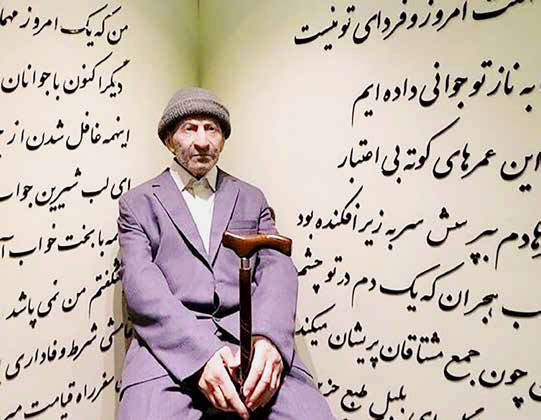 امروز و فردای تو نیست
به ناز تو جوانی داده ایم
این عمرهای کوته بی اعتبار
دم بپرسش سر به زیر افکنده بود
هجران که یک دم در تو چشم
چون جمع مشتاقان پریشان میکند
بلبل طبع
من که یک امروز
دیگر اکنون با جوانان
اینهمه غافل شدن از
ای لب شیرین جواب
با بخت خواب
من نمی پاشد
شرط وفاداری
سفر راه قیامت